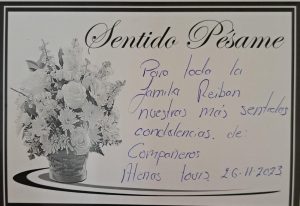 Sentido Pésame
Para toda la
familia Reiban
nuestras más sentidas
condolencias. de:
Compañeros
Atenas tours 26-11-2023